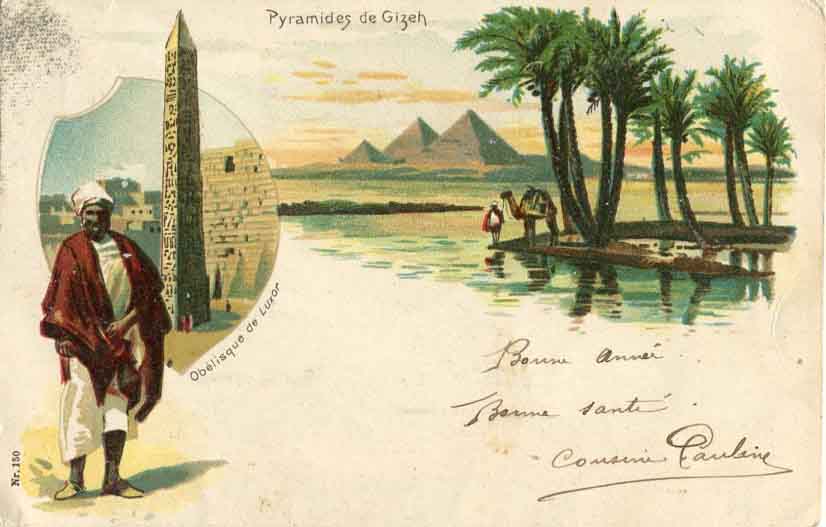 Pyramides de Gizeh
Obélisque de Luxor
Bonne année
Bonne santé
cousine Pauline
Nr. 150